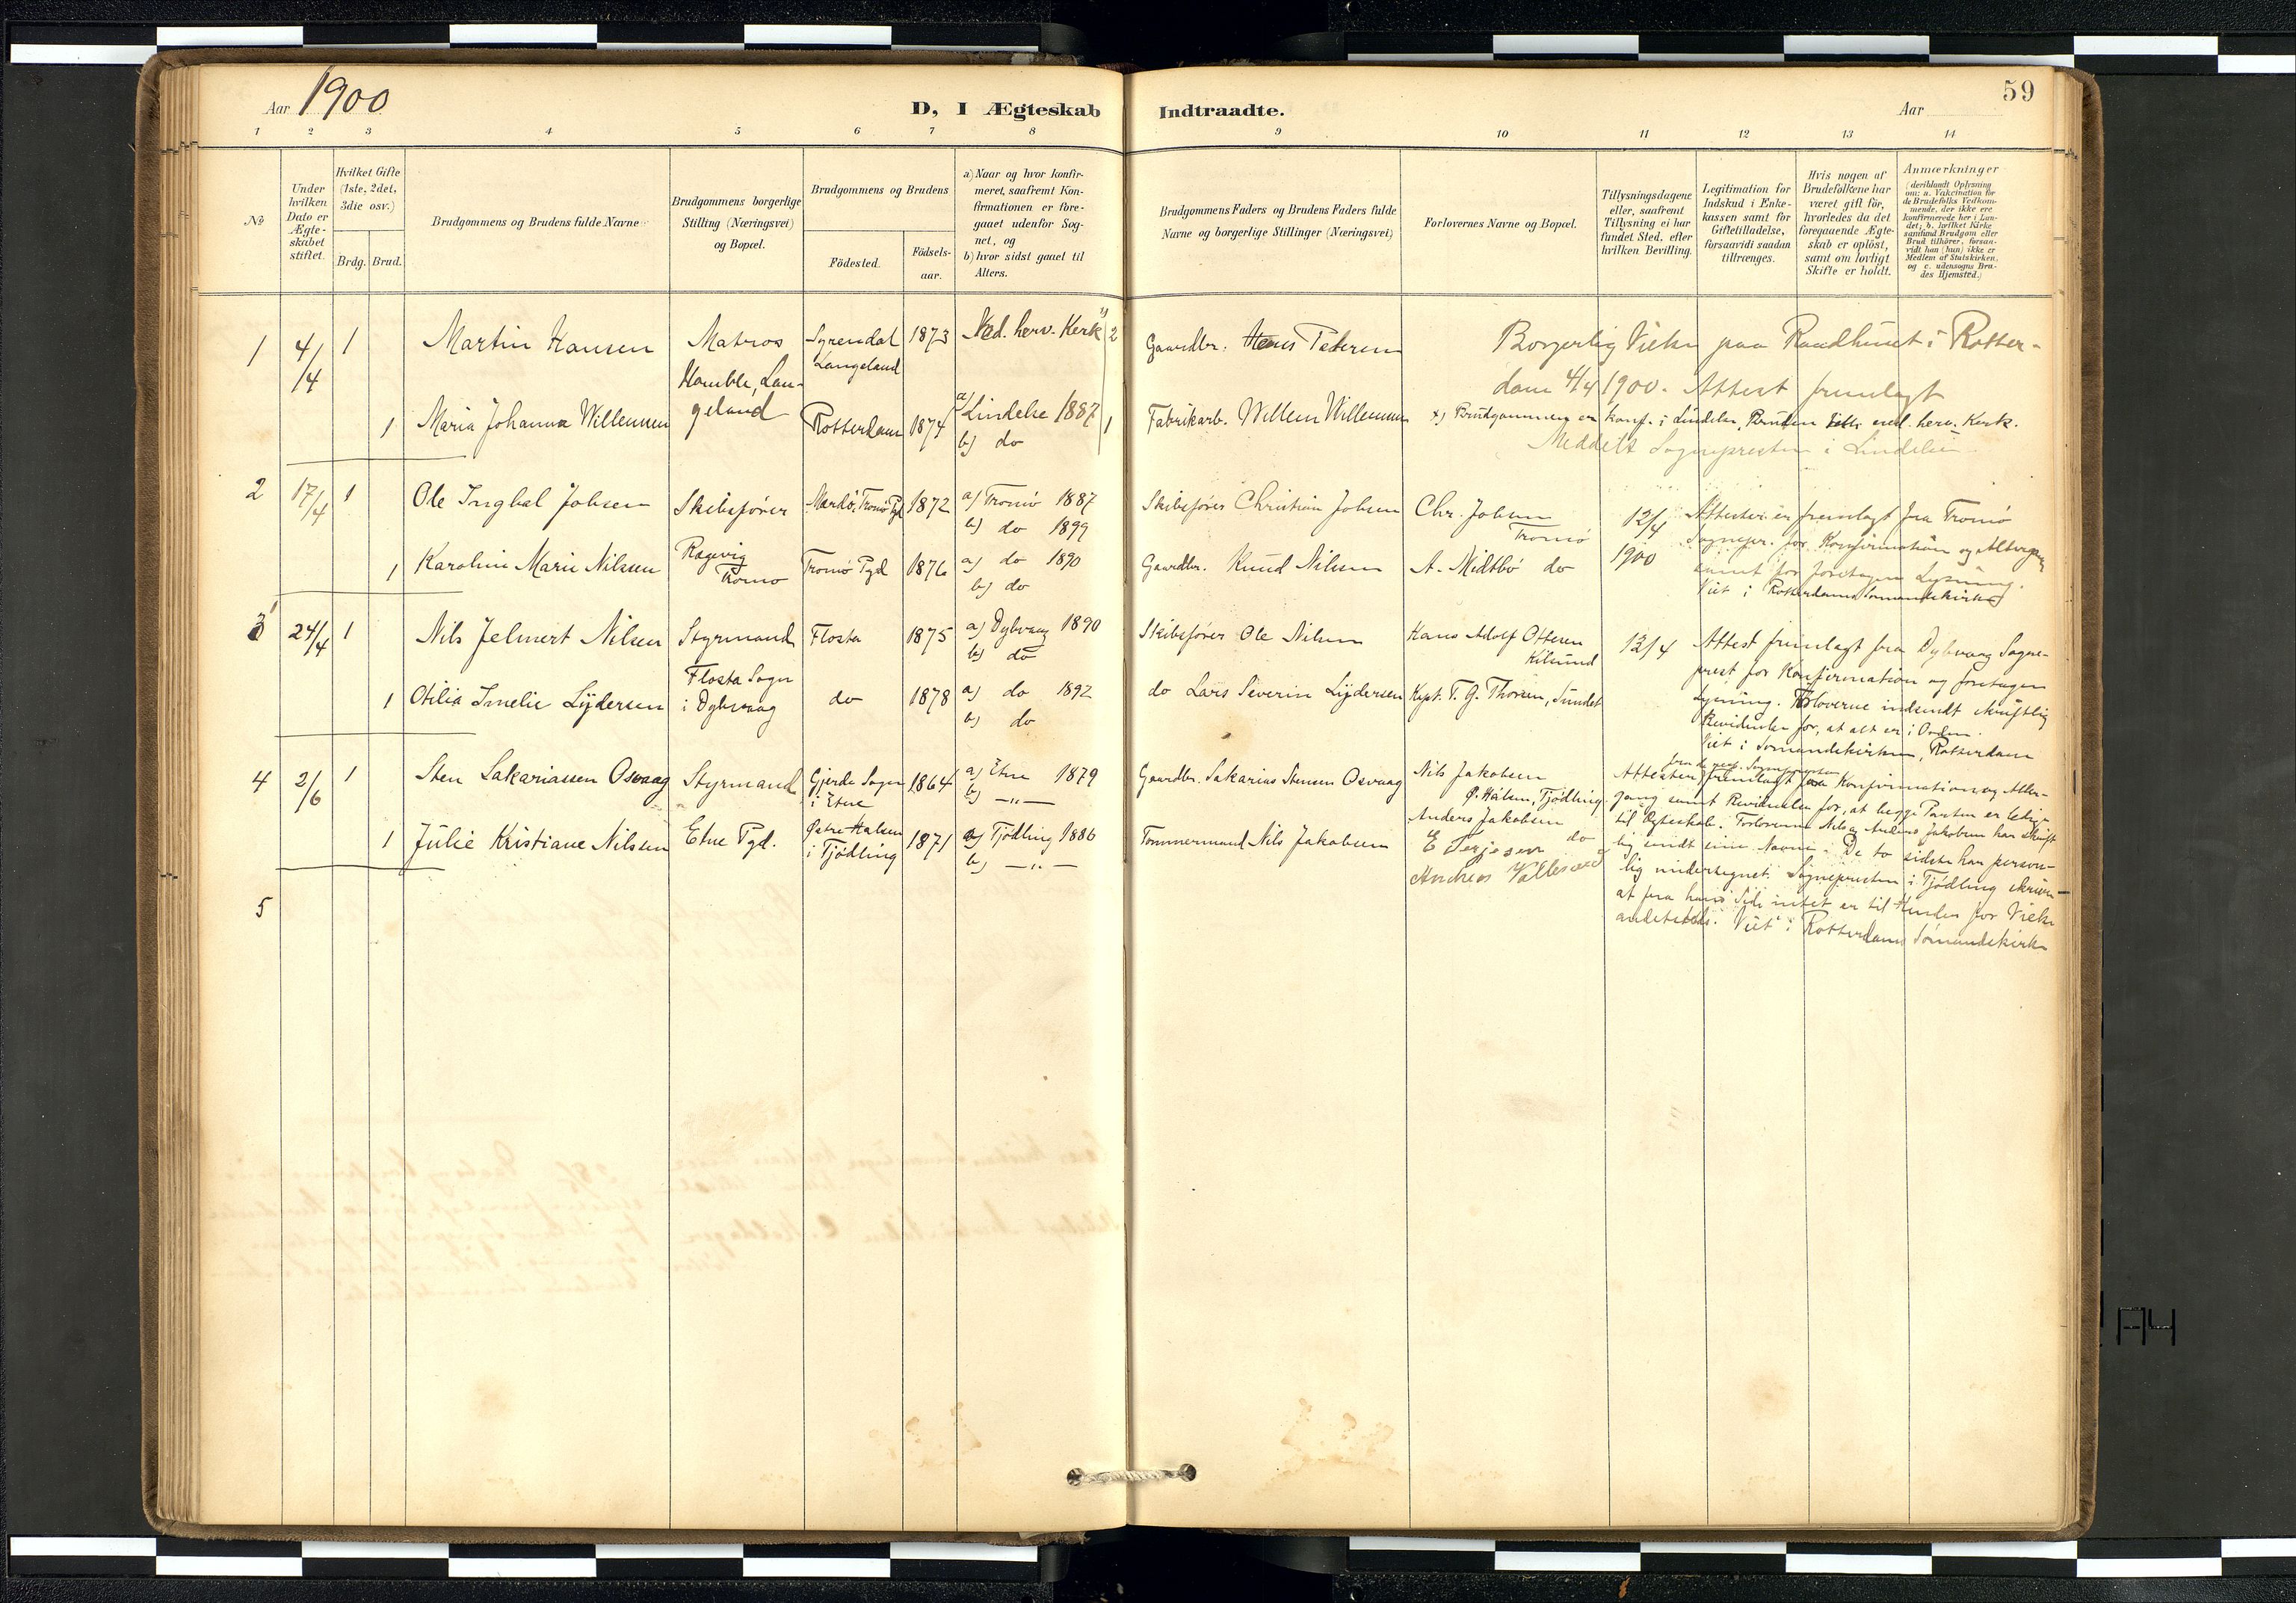 59
Aar 1900
D, I Ægteskab Indtraadte.
Aar
1 2 3 4 5 6 7 8 9 10 11 12 13 14
№
Under hvilken Dato er Ægte-skabet stiftet.
Hvilket Gifte (1ste, 2det, 3die osv.)
Brdg. Brud.
Brudgommens og Brudens fulde Navne
Brudgommens borgerlige Stilling (Næringsvei) og Bopæl.
Brudgommens og Brudens
Födested.
Födsels-aar.
a) Naar og hvor konfir-meret, saafremt Kon-firmationen er fore-gaaet udenfor Sog-net, og
b) hvor sidst gaaet til Alters.
Brudgommens Faders og Brudens Faders fulde Navne og borgerlige Stillinger (Næringsvei)
Forlovernes Navne og Bopæl.
Tillysningsdagene eller, saafremt Tillysning ei har fundet Sted, efter hvilken Bevilling.
Legitimation for Indskud i Enke-kassen samt for Giftetilladelse, forsaavidt saadan tiltrænges.
Hvis nogen af Brudefolkene har været gift för, hvorledes da det foregaaende Ægte-skab er oplöst, samt om lovligt Skifte er holdt.
Anmærkninger
(deriblandt Oplysning om: a. Vakcination for de Brudefolks Vedkom-mende, der ikke ere konfirmerede her i Lan-det; b. hvilket Kirke samfund Brudgom eller Brud tilhörer, forsaa-vidt han (hun) ikke er Medlem af Statskirken, og c. udensogns Bru-des Hjemsted.)
1 4/4 1 Martin Hansen Matros Syrendal Langeland 1873 Ned. herv. Kerk 2
Gaardbr. Hans Pedersen Borgerlig Vielse paa Raadhuset i Rotter-
Humble, Lan-geland
dam 4/4 1900. Attest fremlagt
1 Maria Johanna Willemsen Rotterdam 1874 a) Lindelse 1887 1
b) do
Fabrikarb. Willem Willemsen x) Brudgommen er konf. i Lindelse, Bruden ned. herv. Kerk.
Meddelt Sognepresten i Lindelse.
2 17/4 1 Ole Ingbal Jobsen Skibsfører Mærdø, Tromø Pgd 1872 a) Tromø 1887
b) do 1899
Skibsfører Christian Jobsen Chr. Jobsen Tromø 12/4 1900 Attester er fremlagt fra Tromø
Sognepr. for Konfirmation og Altergang
1 Karoline Marie Nilssen Ragevig Tromø Tromø Pgd 1876 a) do 1890
b) do
Gaardbr. Knud Nilssen A. Midtbø do
samt for foretagen Lysning.
Viet i Rotterdams Sømandskirke
3 24/4 1 Nils Jelmert Nilsen Styrmand Flosta 1875 a) Dybvaag 1890
b) do
Skibsfører Ole Nilsen Hans Adolf Ottesen Kilsund 13/4 Attest fremlagt fra Dybvaag Sogne-
prest for Konfirmation og foretagen
Flosta Sogn i Dybvaag
1 Otilia Imelie Lydersen do 1878 a) do 1892
b) do
do Lars Severin Lydersen Kapt. T. G. Thorsen, Sundet
Lysning. Forloverne indsendt skriftlig
Bevidnelse for, at alt er i Orden.
Viet i Sømandskirken, Rotterdam
4 2/6 1 Sten Sakariassen Osvaag Styrmand Gjerde Sogn i Etne 1864 a) Etne 1879
b) —"—
Gaardbr. Sakarias Stensen Osvaag Nils Jakobsen Ø. Halsen, Tjødling
fra de resp. Sogneprester
Attester fremlagt for Konfirmation og Alter-
gang samt Bevidnelse for, at begge Parter er ledige
1 Julie Kristiane Nilssen Etne Pgd. Østre Halsen i Tjødling 1871 a) Tjødling 1886
b) —"—
Tømmermand Nils Jakobsen Anders Jakobsen do
E Terjesen
Andreas
til Ægteskab. Forloverne Nils og Anders Jakobsen har skrift-
lig sendt sine Navne. De to sidste har person-
lig undertegnet. Sognepresten i Tjødling skriver
at fra hans Side intet er til Hinder for Vielse
andetsteds. Viet i Rotterdams Sømandskirke
5